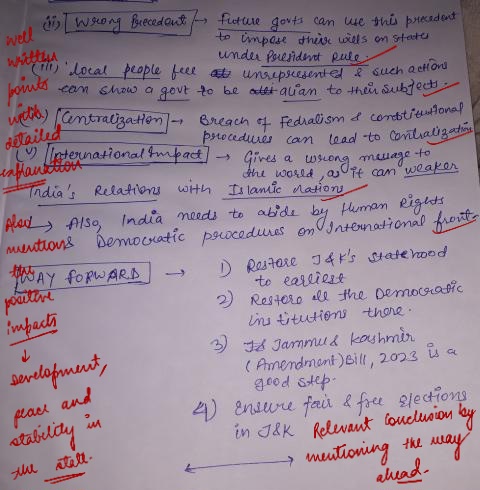 (ii) Wrong Precedent → future govts can use this precedent
to impose their wills on states
under President Rule.
(iii) local people feel unrepresented & such actions
can show a govt to be alian to their subjects.
(iv) Centralization → Breach of fedralism & constitutional
procedures can lead to Centralization
(v) International Impact → Gives a wrong message to
the world, as it can weaker
India's Relations with Islamic nations
→ Also, India needs to abide by Human Rights
& Democratic procedures on International front.
WAY FORWARD → 1) Restore J&K's statehood
to earliest
2) Restore all the Democratic
institutions there.
3) Jammu & Kashmir
(Amendment) Bill, 2023 is a
good step.
4) Ensure fair & free elections
in J&K
well
written
points
with
detailed
explanation
Also
mention
the
positive
impacts
↓
development,
peace and
stability in
the state.
Relevant conclusion by
mentioning the way
ahead.